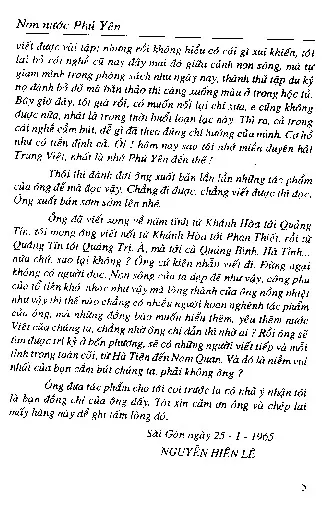 Non nước Phú Yên
viết được vài tập; nhưng rồi không hiểu có cái gì xui khiến, tôi
lại bỏ cái nghề cũ nay đây mai đó giữa cảnh non sông, mà tự
giam mình trong phòng sách như ngày nay, thành thử tập du ký
nọ đành bỏ dở mà bản thảo thì càng xuống màu ở trong hộc tủ.
Bây giờ đây, tôi già rồi, có muốn nối lại chí xưa, e cũng không
được nữa, nhất là trong thời buổi loạn lạc này. Thì ra, cả trong
cái nghề cầm bút, dễ gì đã theo đúng chí hướng của mình. Cơ hồ
như có tiền định cả. Ôi ! hôm nay sao tôi nhớ miền duyên hải
Trung Việt, nhất là nhớ Phú Yên đến thế !
Thôi thì đành đợi ông xuất bản lần lần những tác phẩm
của ông để mà đọc vậy. Chẳng đi được, chẳng viết được thì đọc.
Ông xuất bản sơm sớm lên nhé.
Ông đã viết xong về năm tỉnh từ Khánh Hòa tới Quảng
Tín, tôi mong ông viết nối từ Khánh Hòa tới Phan Thiết, rồi từ
Quảng Tín tới Quảng Trị. À, mà tới cả Quảng Bình, Hà Tĩnh...
nữa chứ, sao lại không ? Ông cứ kiên nhẫn viết đi. Đừng ngại
không có người đọc. Non sông của ta đẹp đẽ như vậy, công phu
của tổ tiên khó nhọc như vậy mà lòng thành của ông nồng nhiệt
như vậy thì thế nào chẳng có nhiều người hoan nghênh tác phẩm
của ông, mà những đồng bào muốn hiểu thêm, yêu thêm nước
Việt của chúng ta, chẳng nhờ ông chỉ dẫn thì nhờ ai ? Rồi ông sẽ
tìm được tri kỷ ở bốn phương, sẽ có những người viết tiếp về mỗi
tỉnh trong toàn cõi, từ Hà Tiên đến Nam Quan. Và đó là niềm vui
nhất của bọn cầm bút chúng ta, phải không ông ?
Ông đưa tác phẩm cho tôi coi trước là có nhã ý nhận tôi
là bạn đồng chí của ông đấy. Tôi xin cảm ơn ông và chép lại
mấy hàng này để ghi tấm lòng đó.
Sài Gòn ngày 25 - 1 - 1965
NGUYỄN HIẾN LÊ
5